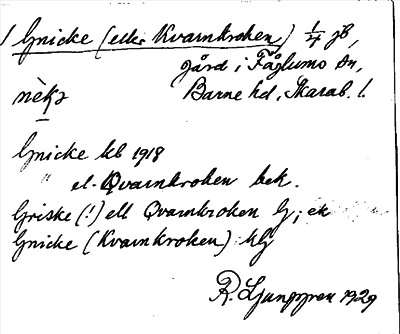 Gnicke (eller Kvarnkroken) 1/4 jb,
gård i Fåglumo sn,
nèkə Barne hd, Skarab. l.
Gnicke kb 1918
" el. Qvarnkroken bek.
Griske (!) ell Qvarnkroken G; ek
Gnicke (Kvarnkroken) klj
R. Ljunggren 1929